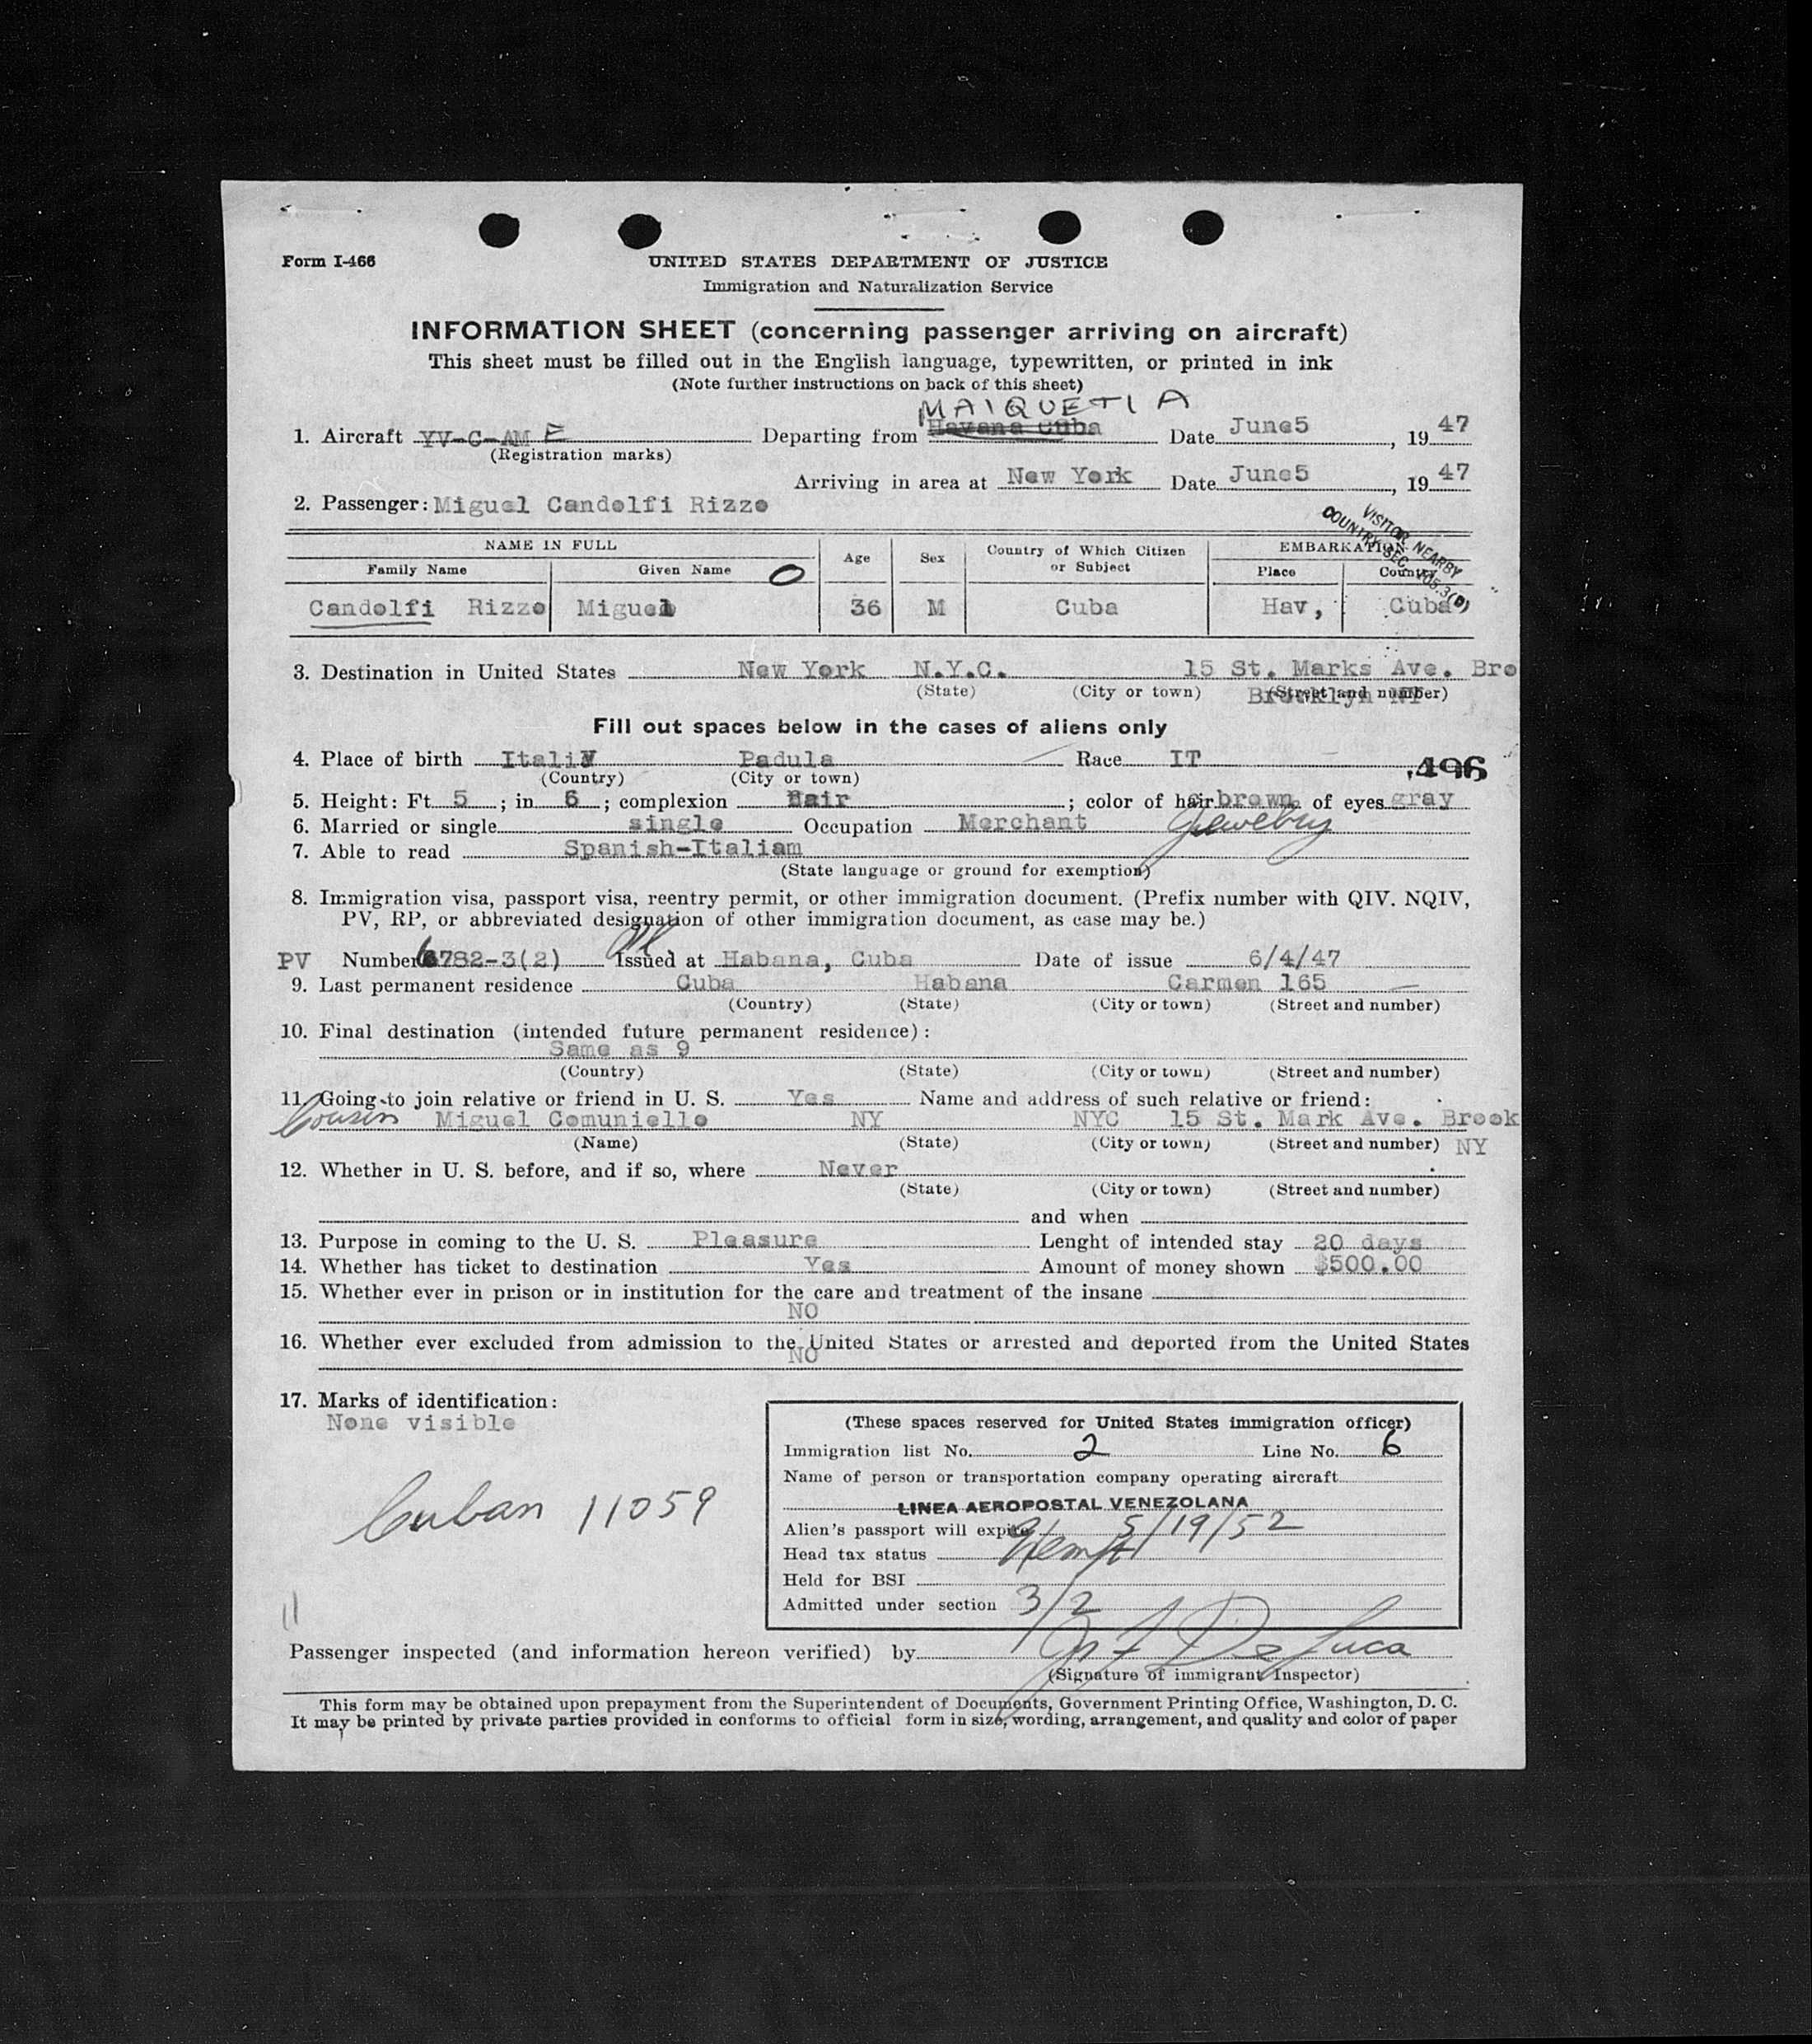 Form I-466
UNITED STATES DEPARTMENT OF JUSTICE
Immigration and Naturalization Service
INFORMATION SHEET (concerning passenger arriving on aircraft)
This sheet must be filled out in the English language, typewritten, or printed in ink
(Note further instructions on back of this sheet)
MAIQUETIA
1. Aircraft YV-C-AM E Departing from Havana Cuba Date June5, 19 47
(Registration marks)
Arriving in area at New York Date June5, 19 47
2. Passenger: Miguel Candolfi Rizzo
VISITOR NEARBY
COUNTRY SEC. 105.3(D)
NAME IN FULL Age Sex Country of Which Citizen or Subject EMBARKATION
Family Name Given Name Place Country
O
Candolfi Rizzo Miguel 36 M Cuba Hav, Cuba
3. Destination in United States New York N.Y.C. 15 St. Marks Ave. Bro
(State) (City or town) (Street and number)
Brooklyn NY
Fill out spaces below in the cases of aliens only
4. Place of birth Italy Padula Race IT
(Country) (City or town)
496
5. Height: Ft. 5; in 6; complexion fair; color of hair brown of eyes gray
6. Married or single single Occupation Merchant Jewelry
7. Able to read Spanish-Italiam
(State language or ground for exemption)
8. Immigration visa, passport visa, reentry permit, or other immigration document. (Prefix number with QIV. NQIV,
PV, RP, or abbreviated designation of other immigration document, as case may be.)
PV Number 6782-3(2) Issued at Habana, Cuba Date of issue 6/4/47
9. Last permanent residence Cuba Habana Carmen 165
(Country) (State) (City or town) (Street and number)
10. Final destination (intended future permanent residence):
Same as 9
(Country) (State) (City or town) (Street and number)
11. Going to join relative or friend in U. S. Yes Name and address of such relative or friend:
Cousin Miguel Comuniello NY NYC 15 St. Mark Ave. Brook
(Name) (State) (City or town) (Street and number) NY
12. Whether in U. S. before, and if so, where Never
(State) (City or town) (Street and number)
and when
13. Purpose in coming to the U. S. Pleasure Lenght of intended stay 20 days
14. Whether has ticket to destination Yes Amount of money shown $500.00
15. Whether ever in prison or in institution for the care and treatment of the insane
NO
16. Whether ever excluded from admission to the United States or arrested and deported from the United States
NO
17. Marks of identification:
None visible
Cuban 11059
(These spaces reserved for United States immigration officer)
Immigration list No. 2 Line No. 6
Name of person or transportation company operating aircraft
LINEA AEROPOSTAL VENEZOLANA
Alien's passport will expire 5/19/52
Head tax status Exempt
Held for BSI
Admitted under section 3/2
Passenger inspected (and information hereon verified) by De Luca
(Signature of immigrant Inspector)
This form may be obtained upon prepayment from the Superintendent of Documents, Government Printing Office, Washington, D. C.
It may be printed by private parties provided in conforms to official form in size, wording, arrangement, and quality and color of paper